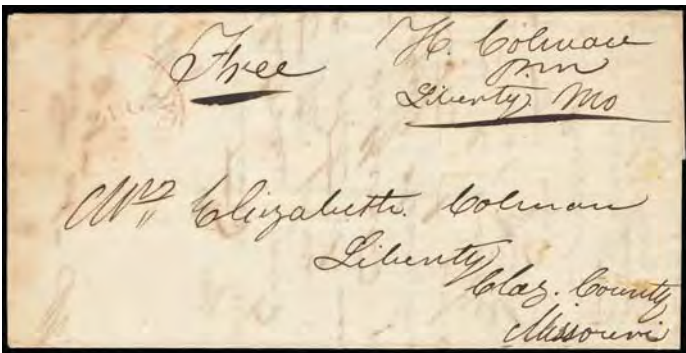 Free
H. Colman
P.M
Liberty. Mo
Mrs Elizabeth. Colman
Liberty
Clay. County
Missouri